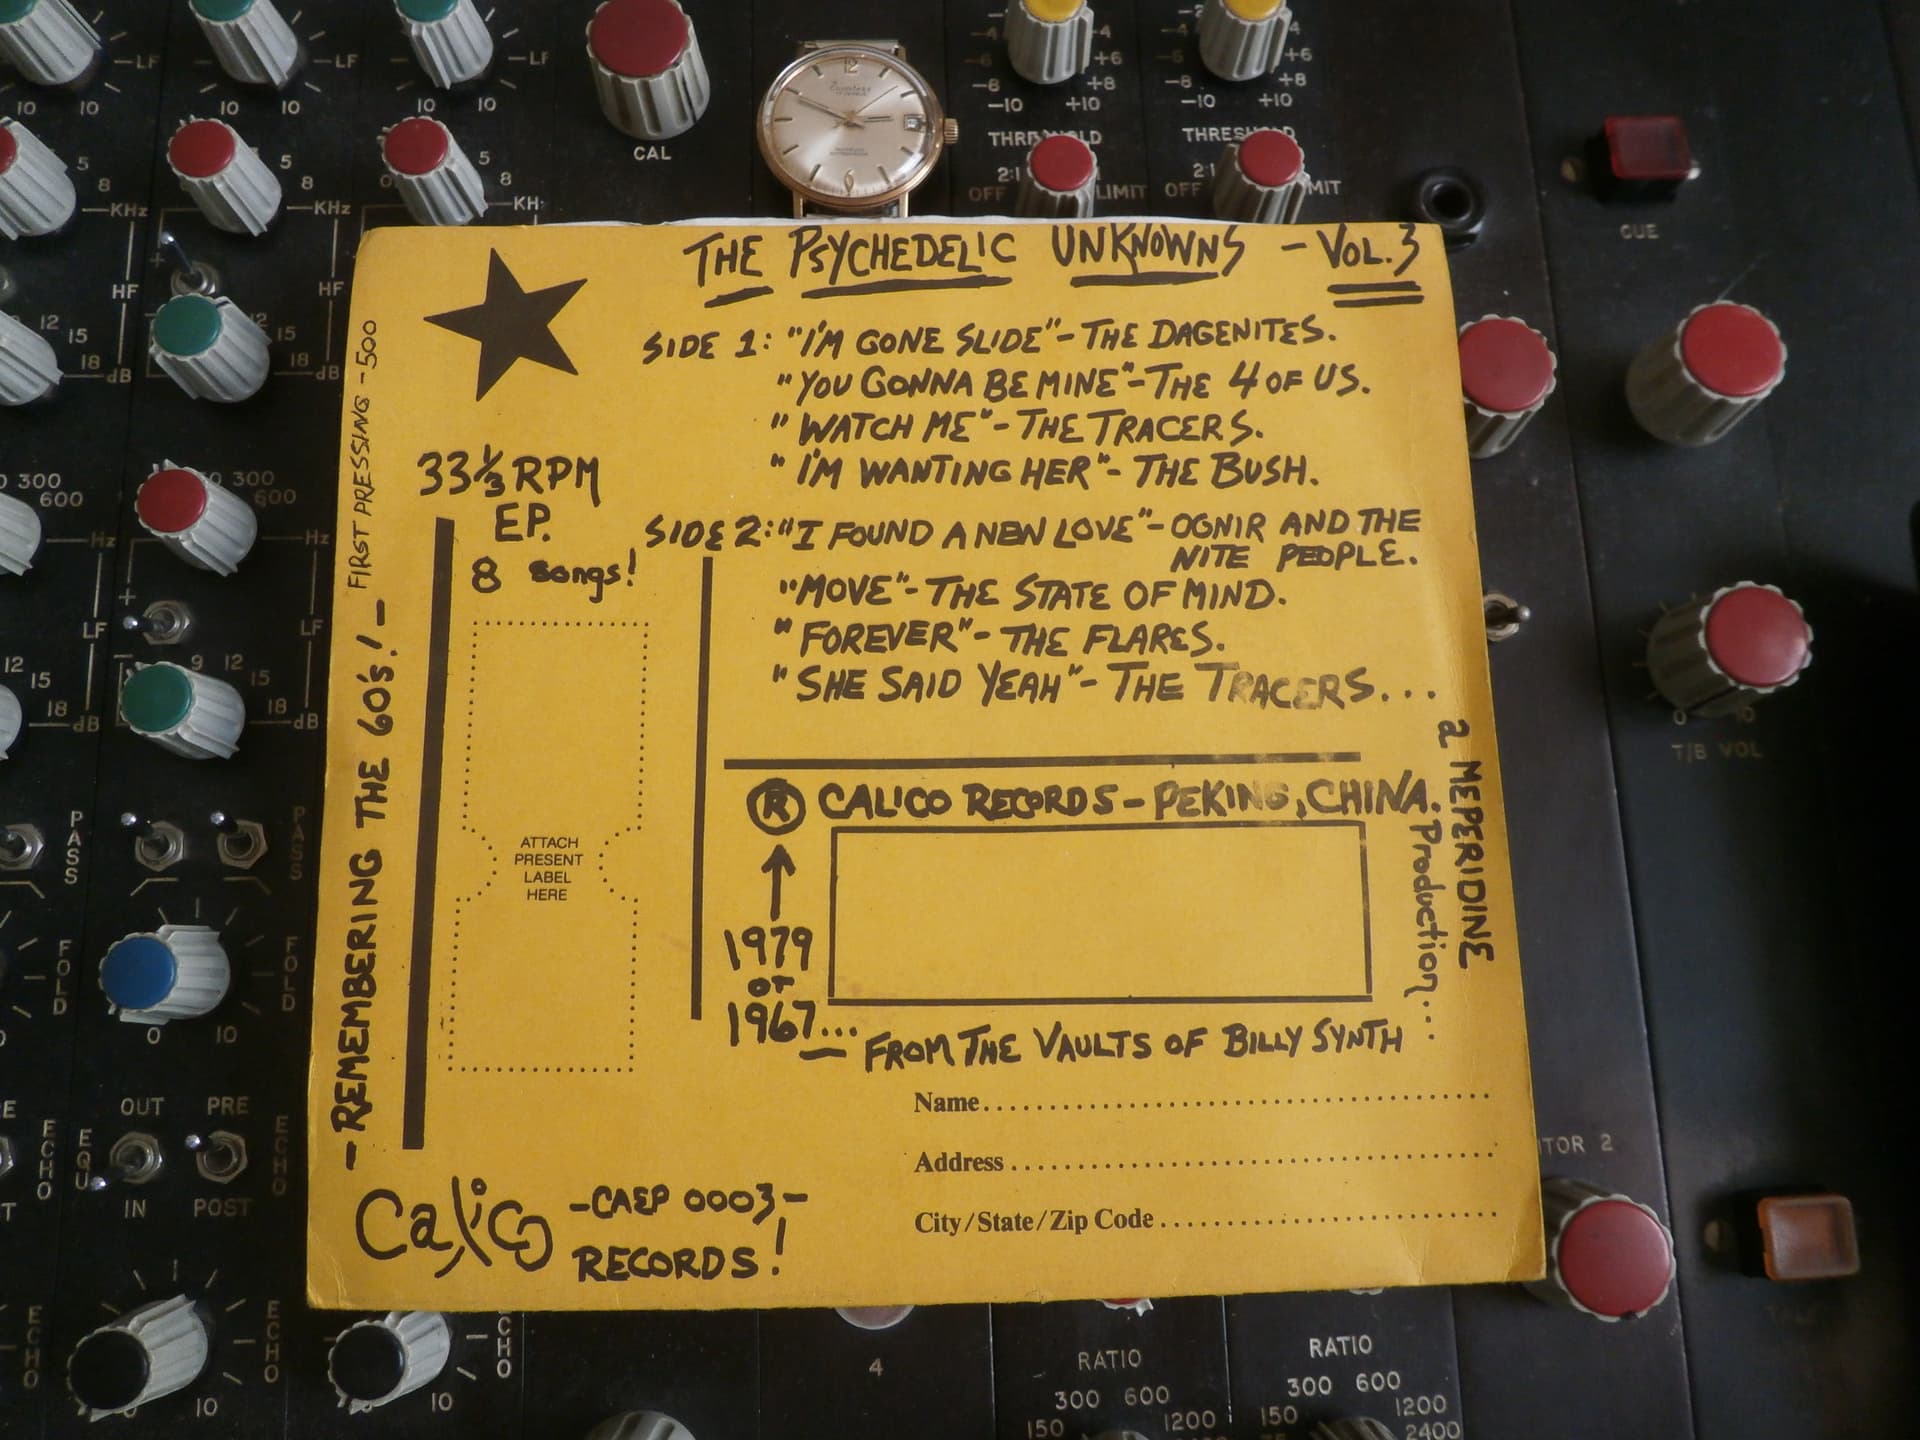 LF
LF
LF
10
10
10
10
10
CAL
12
-4
-6
-8
-10
+4
+6
+8
+10
-2
-4
-6
-8
-10
+4
+6
+8
+10
5
8
KHz
5
8
KHz
5
8
KH
THRESHOLD
2:1
OFF
LIMIT
THRESHOLD
2:1
OFF
CUE
HF
HF
12
15
18
dB
12
15
18
dB
THE PSYCHEDELIC UNKNOWNS - VOL. 3
SIDE 1: "I'M GONE SLIDE" - THE DAGENITES.
"YOU GONNA BE MINE" - THE 4 OF US.
"WATCH ME" - THE TRACERS.
"I'M WANTING HER" - THE BUSH.
SIDE 2: "I FOUND A NEW LOVE" - OGNIR AND THE
NITE PEOPLE.
"MOVE" - THE STATE OF MIND.
"FOREVER" - THE FLARES.
"SHE SAID YEAH" - THE TRACERS...
33 1/3 RPM
EP.
8 songs!
-REMEMBERING THE 60's! - FIRST PRESSING - 500
ATTACH
PRESENT
LABEL
HERE
R CALICO RECORDS - PEKING, CHINA.
a MEPERIDINE
Production....
1979
or
1967...
FROM THE VAULTS OF BILLY SYNTH
Name
Address
City/State/Zip Code
Calico -CAEP 0003-
RECORDS!
300
600
Hz
300
600
Hz
LF
LF
12
15
18
dB
9
12
15
18
dB
PASS
PASS
FOLD
FOLD
0
10
OUT
PRE
ECHO
EQU
ECHO
IN
POST
ECHO
ECHO
ECHO
10
10
0
10
T/B VOL
ITOR 2
4
RATIO
300 600
150
1200
RATIO
300 600
150
1200
2400